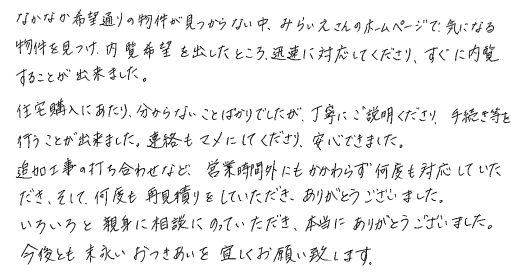 なかなか希望通りの物件が見つからない中、みらいえさんのホームページで気になる
物件を見つけ、内覧希望を出したところ、迅速に対応してくださり、すぐに内覧
することが出来ました。
住宅購入にあたり、分からないことばかりでしたが、丁寧にご説明くださり、手続き等を
行うことが出来ました。連絡もマメにしてくださり、安心できました。
追加工事の打ち合わせなど、営業時間外にもかかわらず何度も対応していた
だき、そして、何度も再見積りをしていただき、ありがとうございました。
いろいろと親身に相談にのっていただき、本当にありがとうございました。
今後とも末永いおつきあいを宜しくお願い致します。